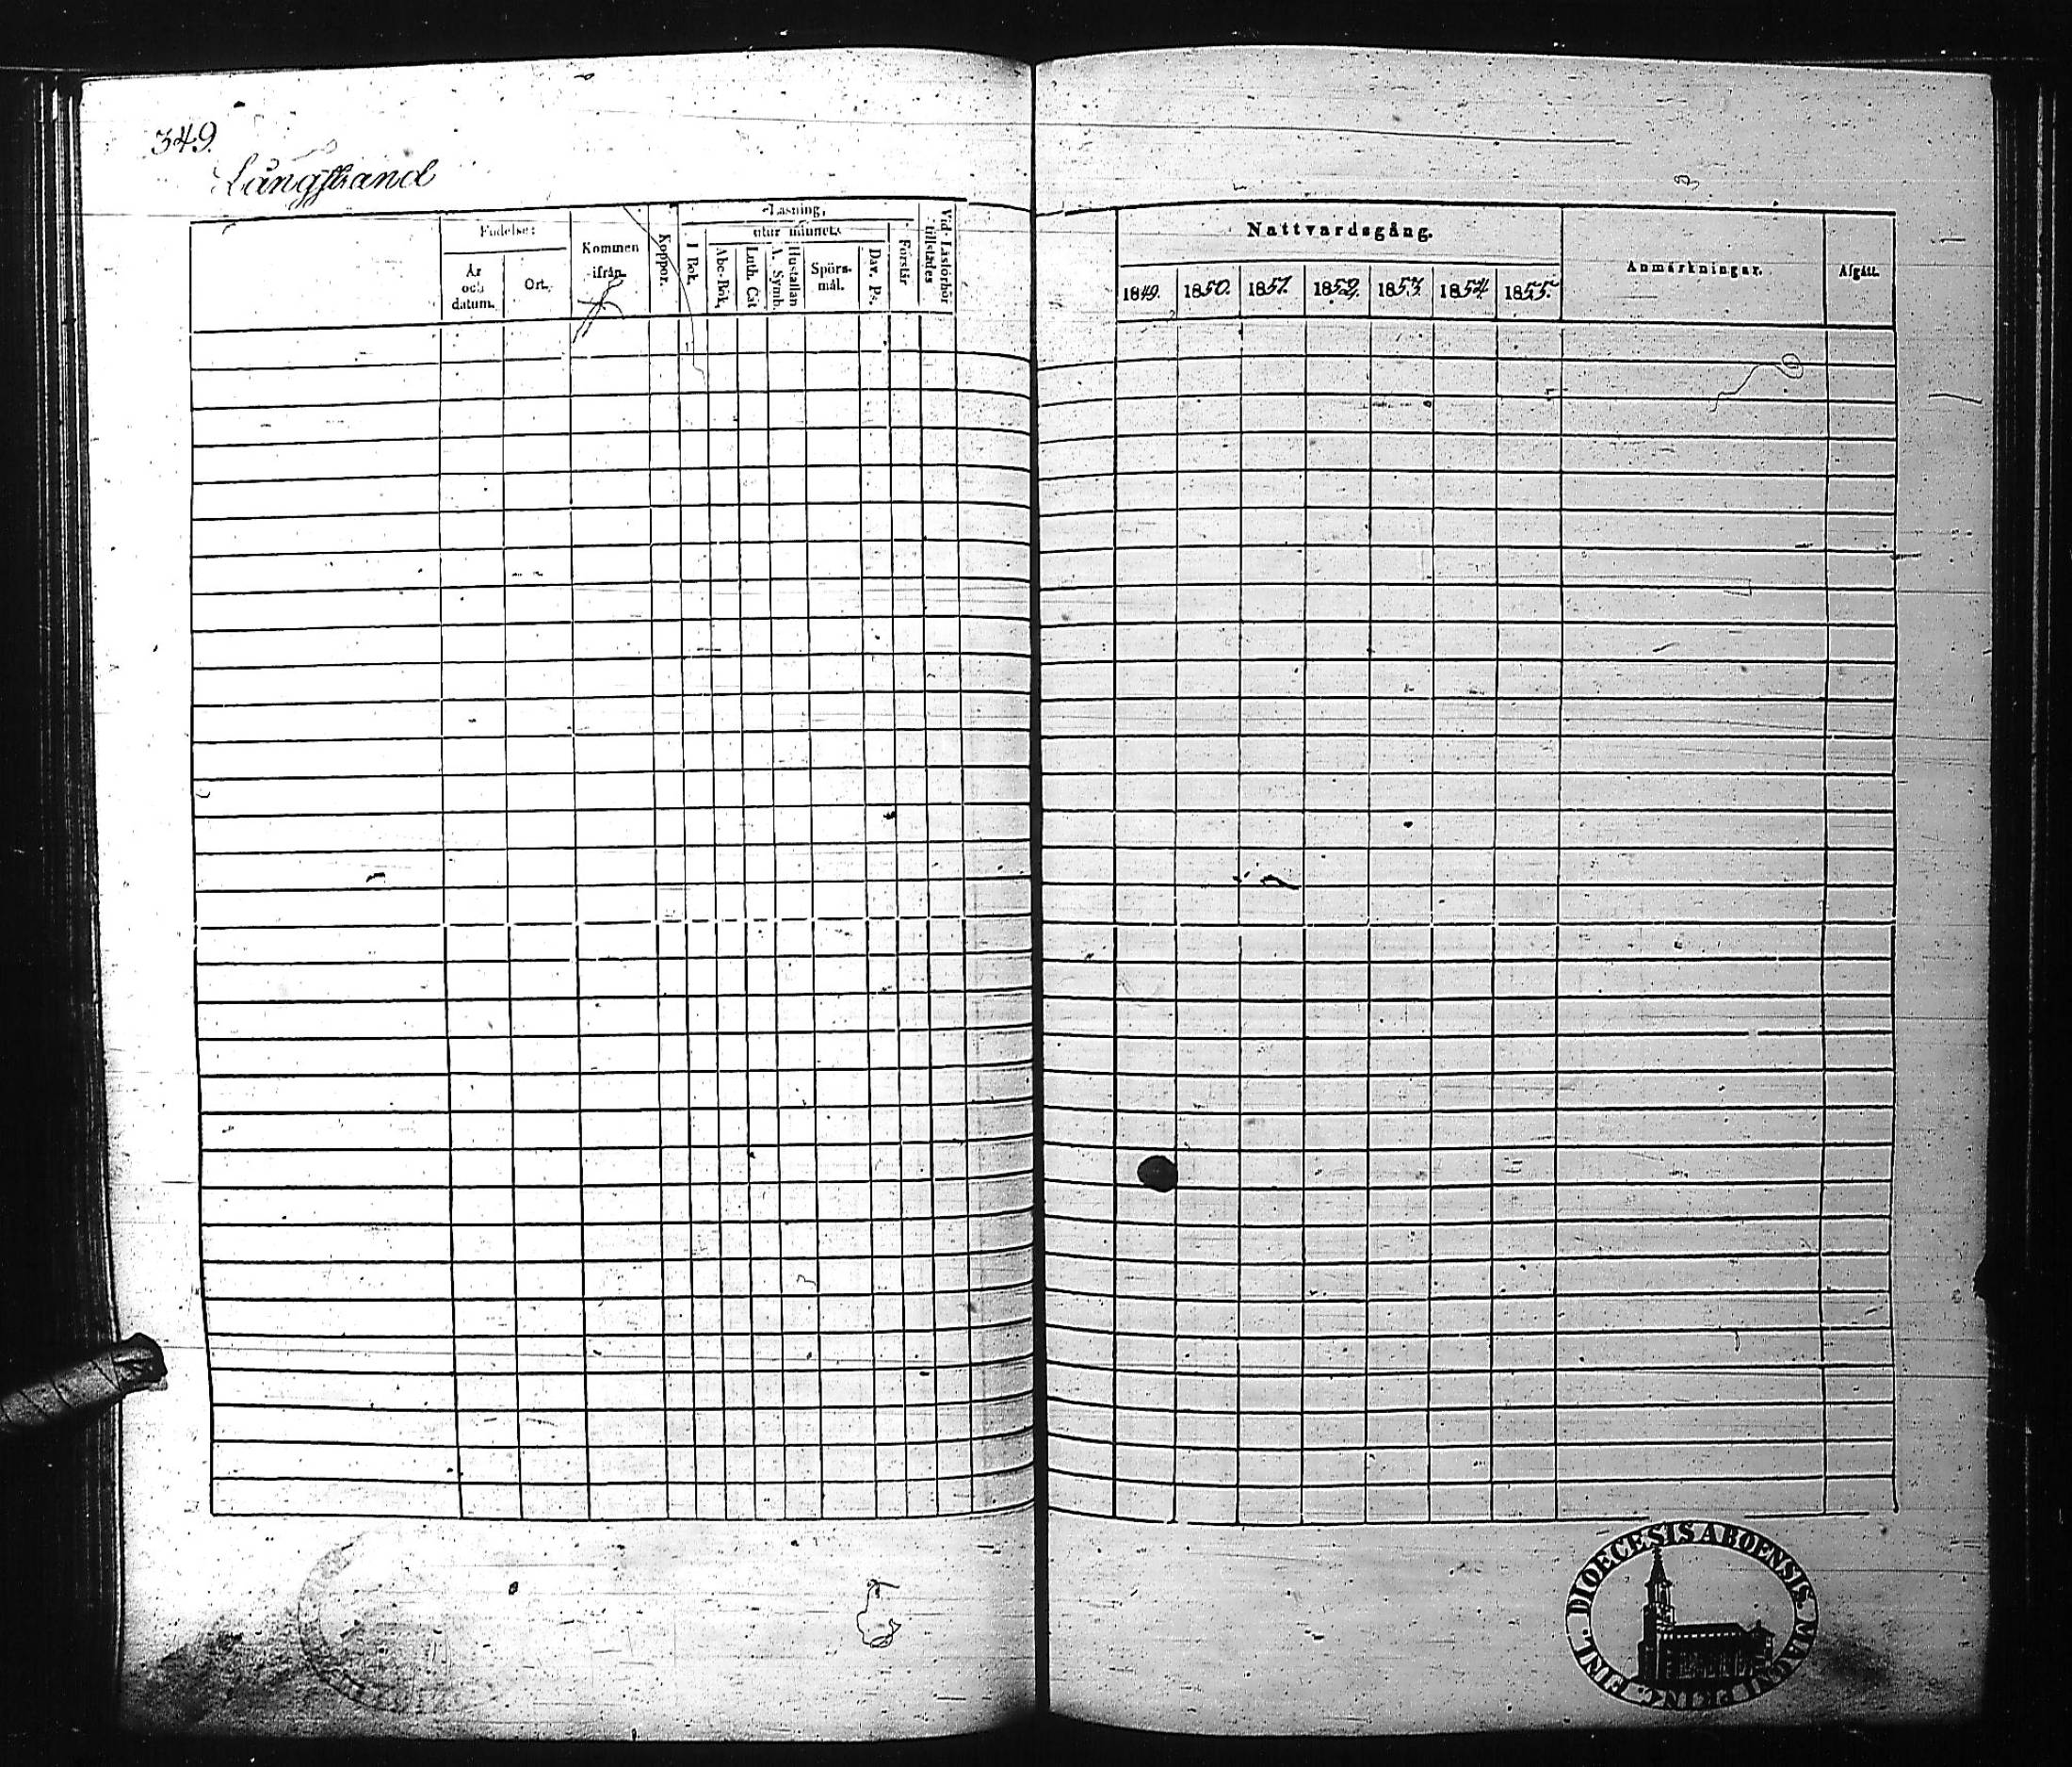 349.
Långstrand
Födelse:
År och datum.
Ort.
Kommen ifrån
Koppor.
Läsning,
utur minnet.
I Bok.
Abc-Bok,
Luth. Cat
A. Symb.
Hustaflan
Spörs-mål.
Dav. Ps.
Förstår
Vid Läsförhör tillstädes
Nattvardsgång.
1849. 1850. 1851. 1852. 1853. 1854. 1855.
Anmärkningar.
Afgått.
DIOECESIS ABOENSIS. MAGNI PRINC. FINL.